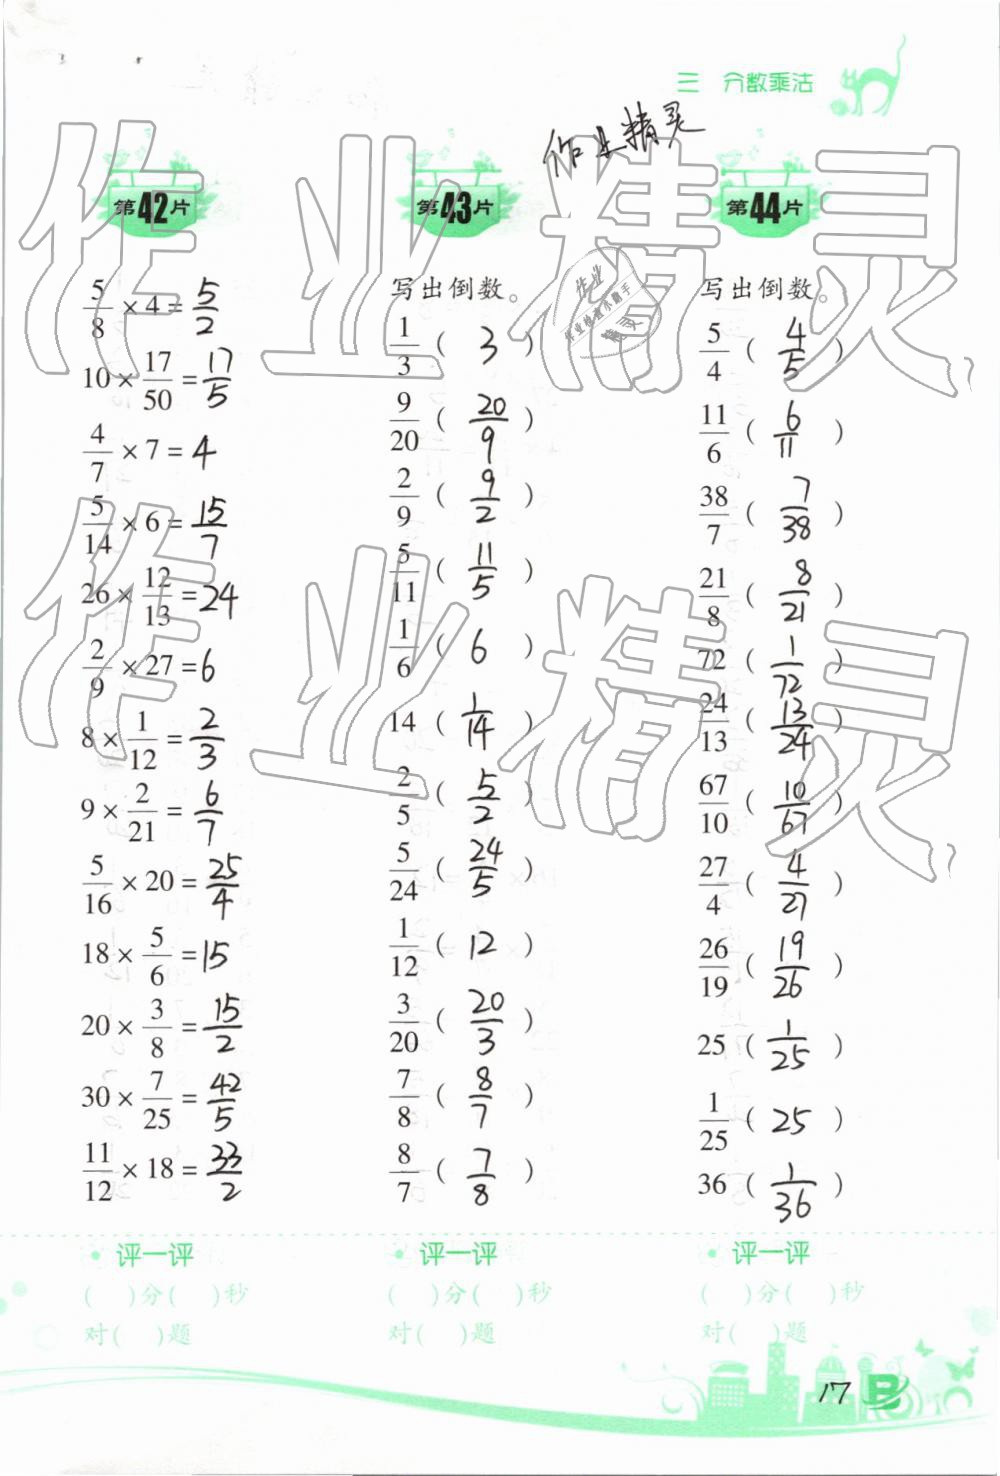 三 分数乘法
作业精灵
第42片
5/8 × 4 = 5/2
10 × 17/50 = 17/5
4/7 × 7 = 4
5/14 × 6 = 15/7
26 × 12/13 = 24
2/9 × 27 = 6
8 × 1/12 = 2/3
9 × 2/21 = 6/7
5/16 × 20 = 25/4
18 × 5/6 = 15
20 × 3/8 = 15/2
30 × 7/25 = 42/5
11/12 × 18 = 33/2
评一评
( )分( )秒
对( )题
第43片
写出倒数。
1/3 ( 3 )
9/20 ( 20/9 )
2/9 ( 9/2 )
5/11 ( 11/5 )
1/6 ( 6 )
14 ( 1/14 )
2/5 ( 5/2 )
5/24 ( 24/5 )
1/12 ( 12 )
3/20 ( 20/3 )
7/8 ( 8/7 )
8/7 ( 7/8 )
评一评
( )分( )秒
对( )题
第44片
写出倒数。
5/4 ( 4/5 )
11/6 ( 6/11 )
38/7 ( 7/38 )
21/8 ( 8/21 )
72 ( 1/72 )
24/13 ( 13/24 )
67/10 ( 10/67 )
27/4 ( 4/27 )
26/19 ( 19/26 )
25 ( 1/25 )
1/25 ( 25 )
36 ( 1/36 )
评一评
( )分( )秒
对( )题
17
作业精灵
作业精灵
作业
精灵